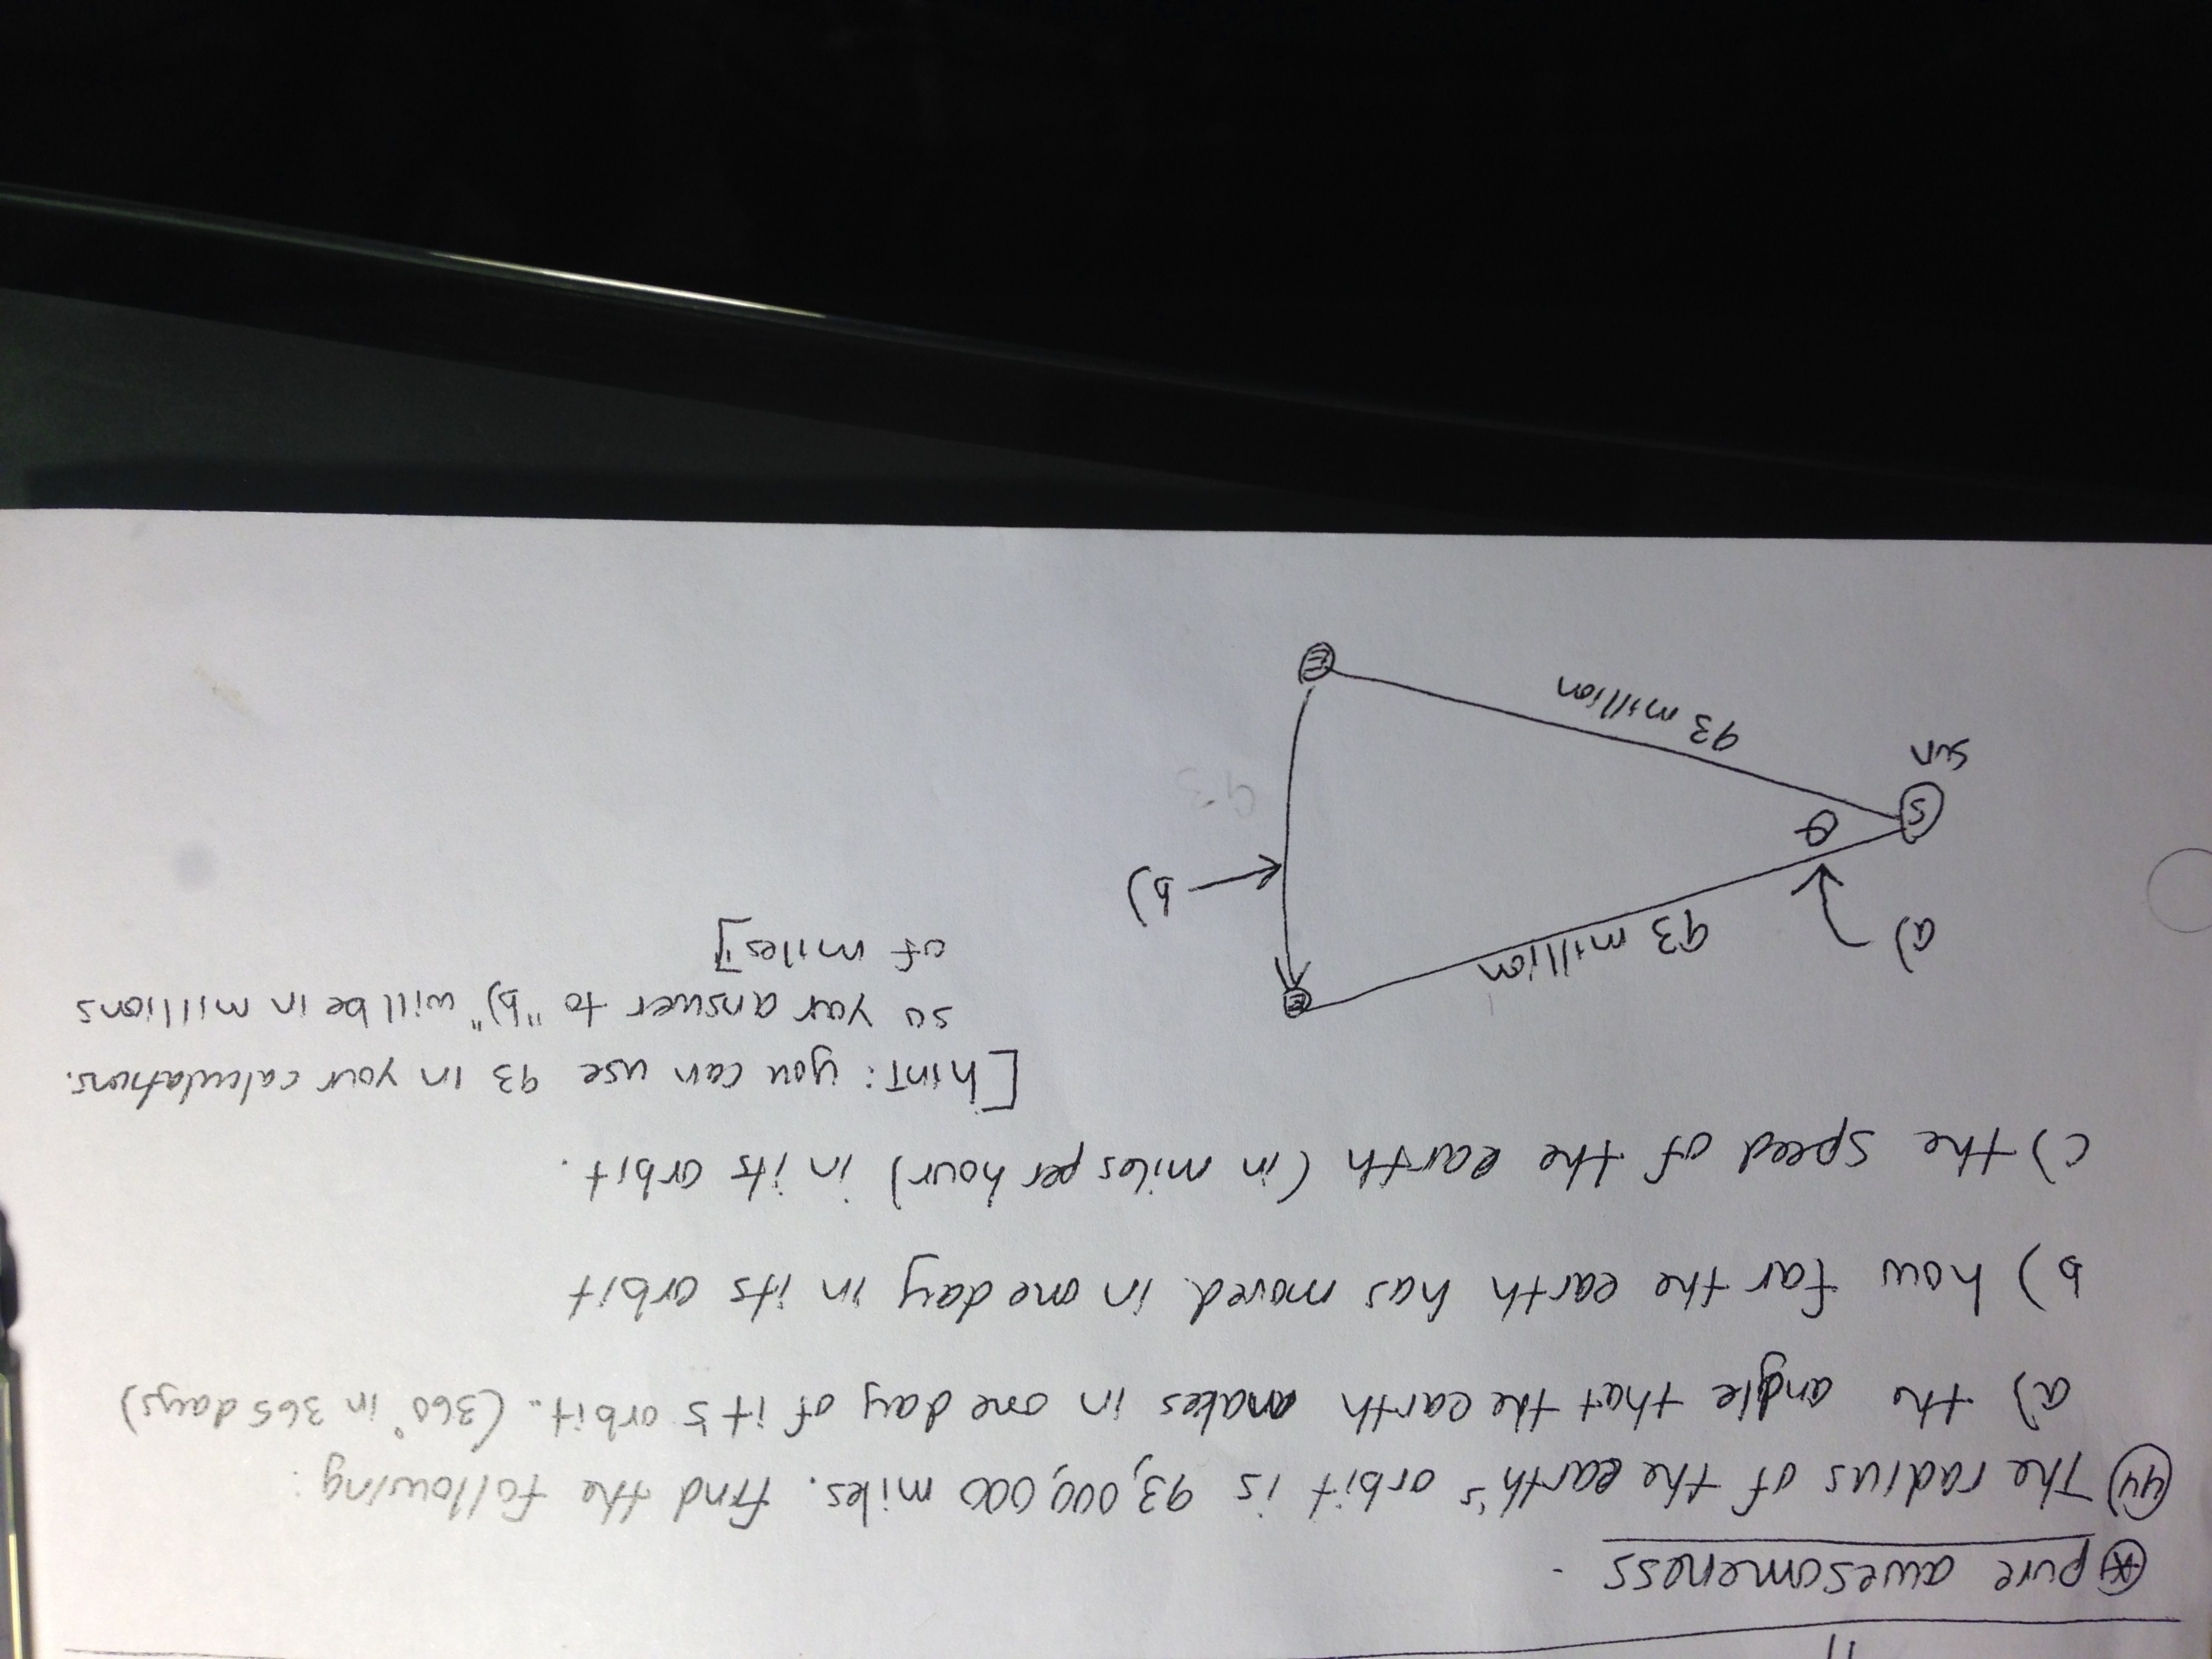 * pure awesomeness
44) The radius of the earth's orbit is 93,000,000 miles. find the following:
a) the angle that the earth makes in one day of it's orbit. (360° in 365 days)
b) how far the earth has moved in one day in its orbit
c) the speed of the earth (in miles per hour) in its orbit.
[hint: you can use 93 in your calculations.
so your answer to "b)" will be in millions
of miles]
a)
93 million
E
b)
θ
S
sun
93
93 million
E